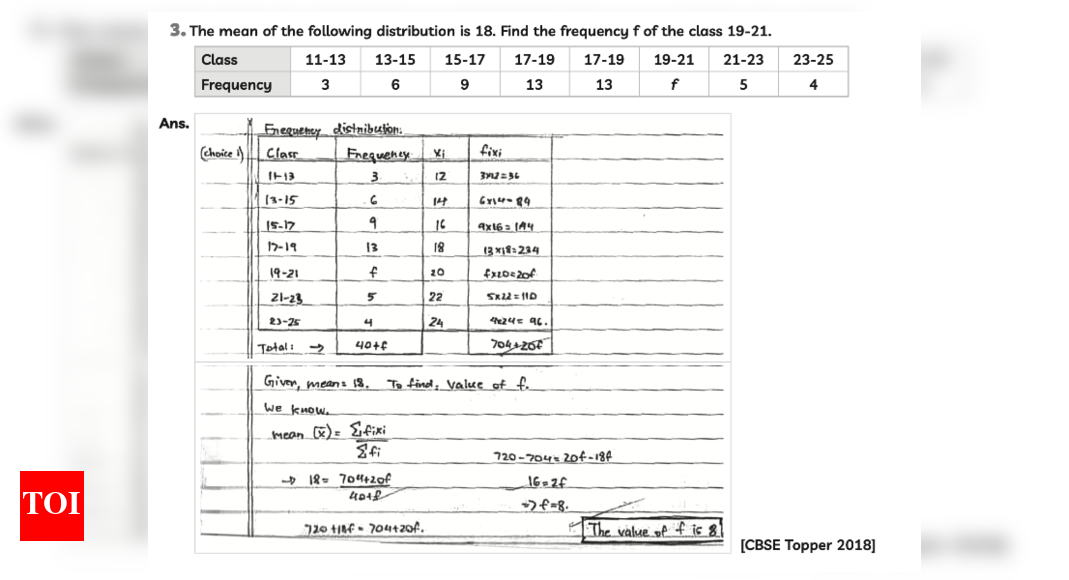 3. The mean of the following distribution is 18. Find the frequency f of the class 19-21.
Class 11-13 13-15 15-17 17-19 17-19 19-21 21-23 23-25
Frequency 3 6 9 13 13 f 5 4
Ans.
Frequency distribution:
(choice 1) Class Frequency xi fixi
11-13 3 12 3x12=36
13-15 6 14 6x14=84
15-17 9 16 9x16=144
17-19 13 18 13x18=234
19-21 f 20 fx20=20f
21-23 5 22 5x22=110
23-25 4 24 4x24=96.
Total: → 40+f 704+20f
Given, mean=18. To find: Value of f.
We know,
mean (x̄)= Σfixi
Σfi
720-704=20f-18f
→ 18= 704+20f
40+f
16=2f
=> f=8.
720+18f=704+20f.
The value of f is 8
TOI
[CBSE Topper 2018]